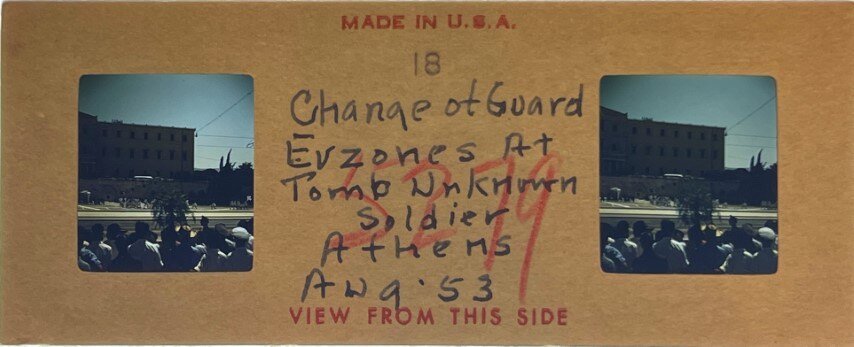 MADE IN U.S.A.
18
Change of Guard
Evzones At
Tomb Unknown
Soldier
Athens
Aug. 53
5279
VIEW FROM THIS SIDE